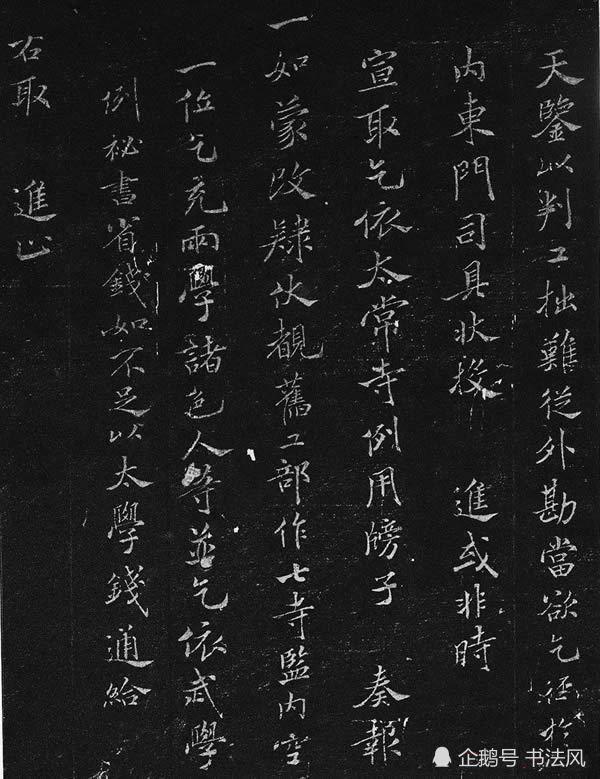 天鑒以判工拙難從外勘當欲乞徑於
內東門司具狀投 進或非時
宣取乞依太常寺例用牓子 奏報
一如蒙改隸伏覩舊工部作七寺監內空
一位乞充兩學諸色人等並乞依武學
例祕書省錢如不足以太學錢通給
右取 進止
企鹅号 书法风